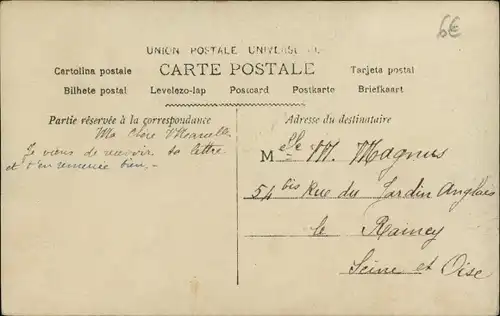 6€
UNION POSTALE UNIVERSELLE
CARTE POSTALE
Cartolina postale
Tarjeta postal
Bilhete postal Levelezo-lap Postcard Postkarte Briefkaart
Partie réservée à la correspondance
Ma Chère Marcelle
Je viens de recevoir ta lettre
et t'en remercie bien.-
Adresse du destinataire
Melle M. Magnus
54 bis Rue du Jardin Anglais
le Raincy
Seine et Oise